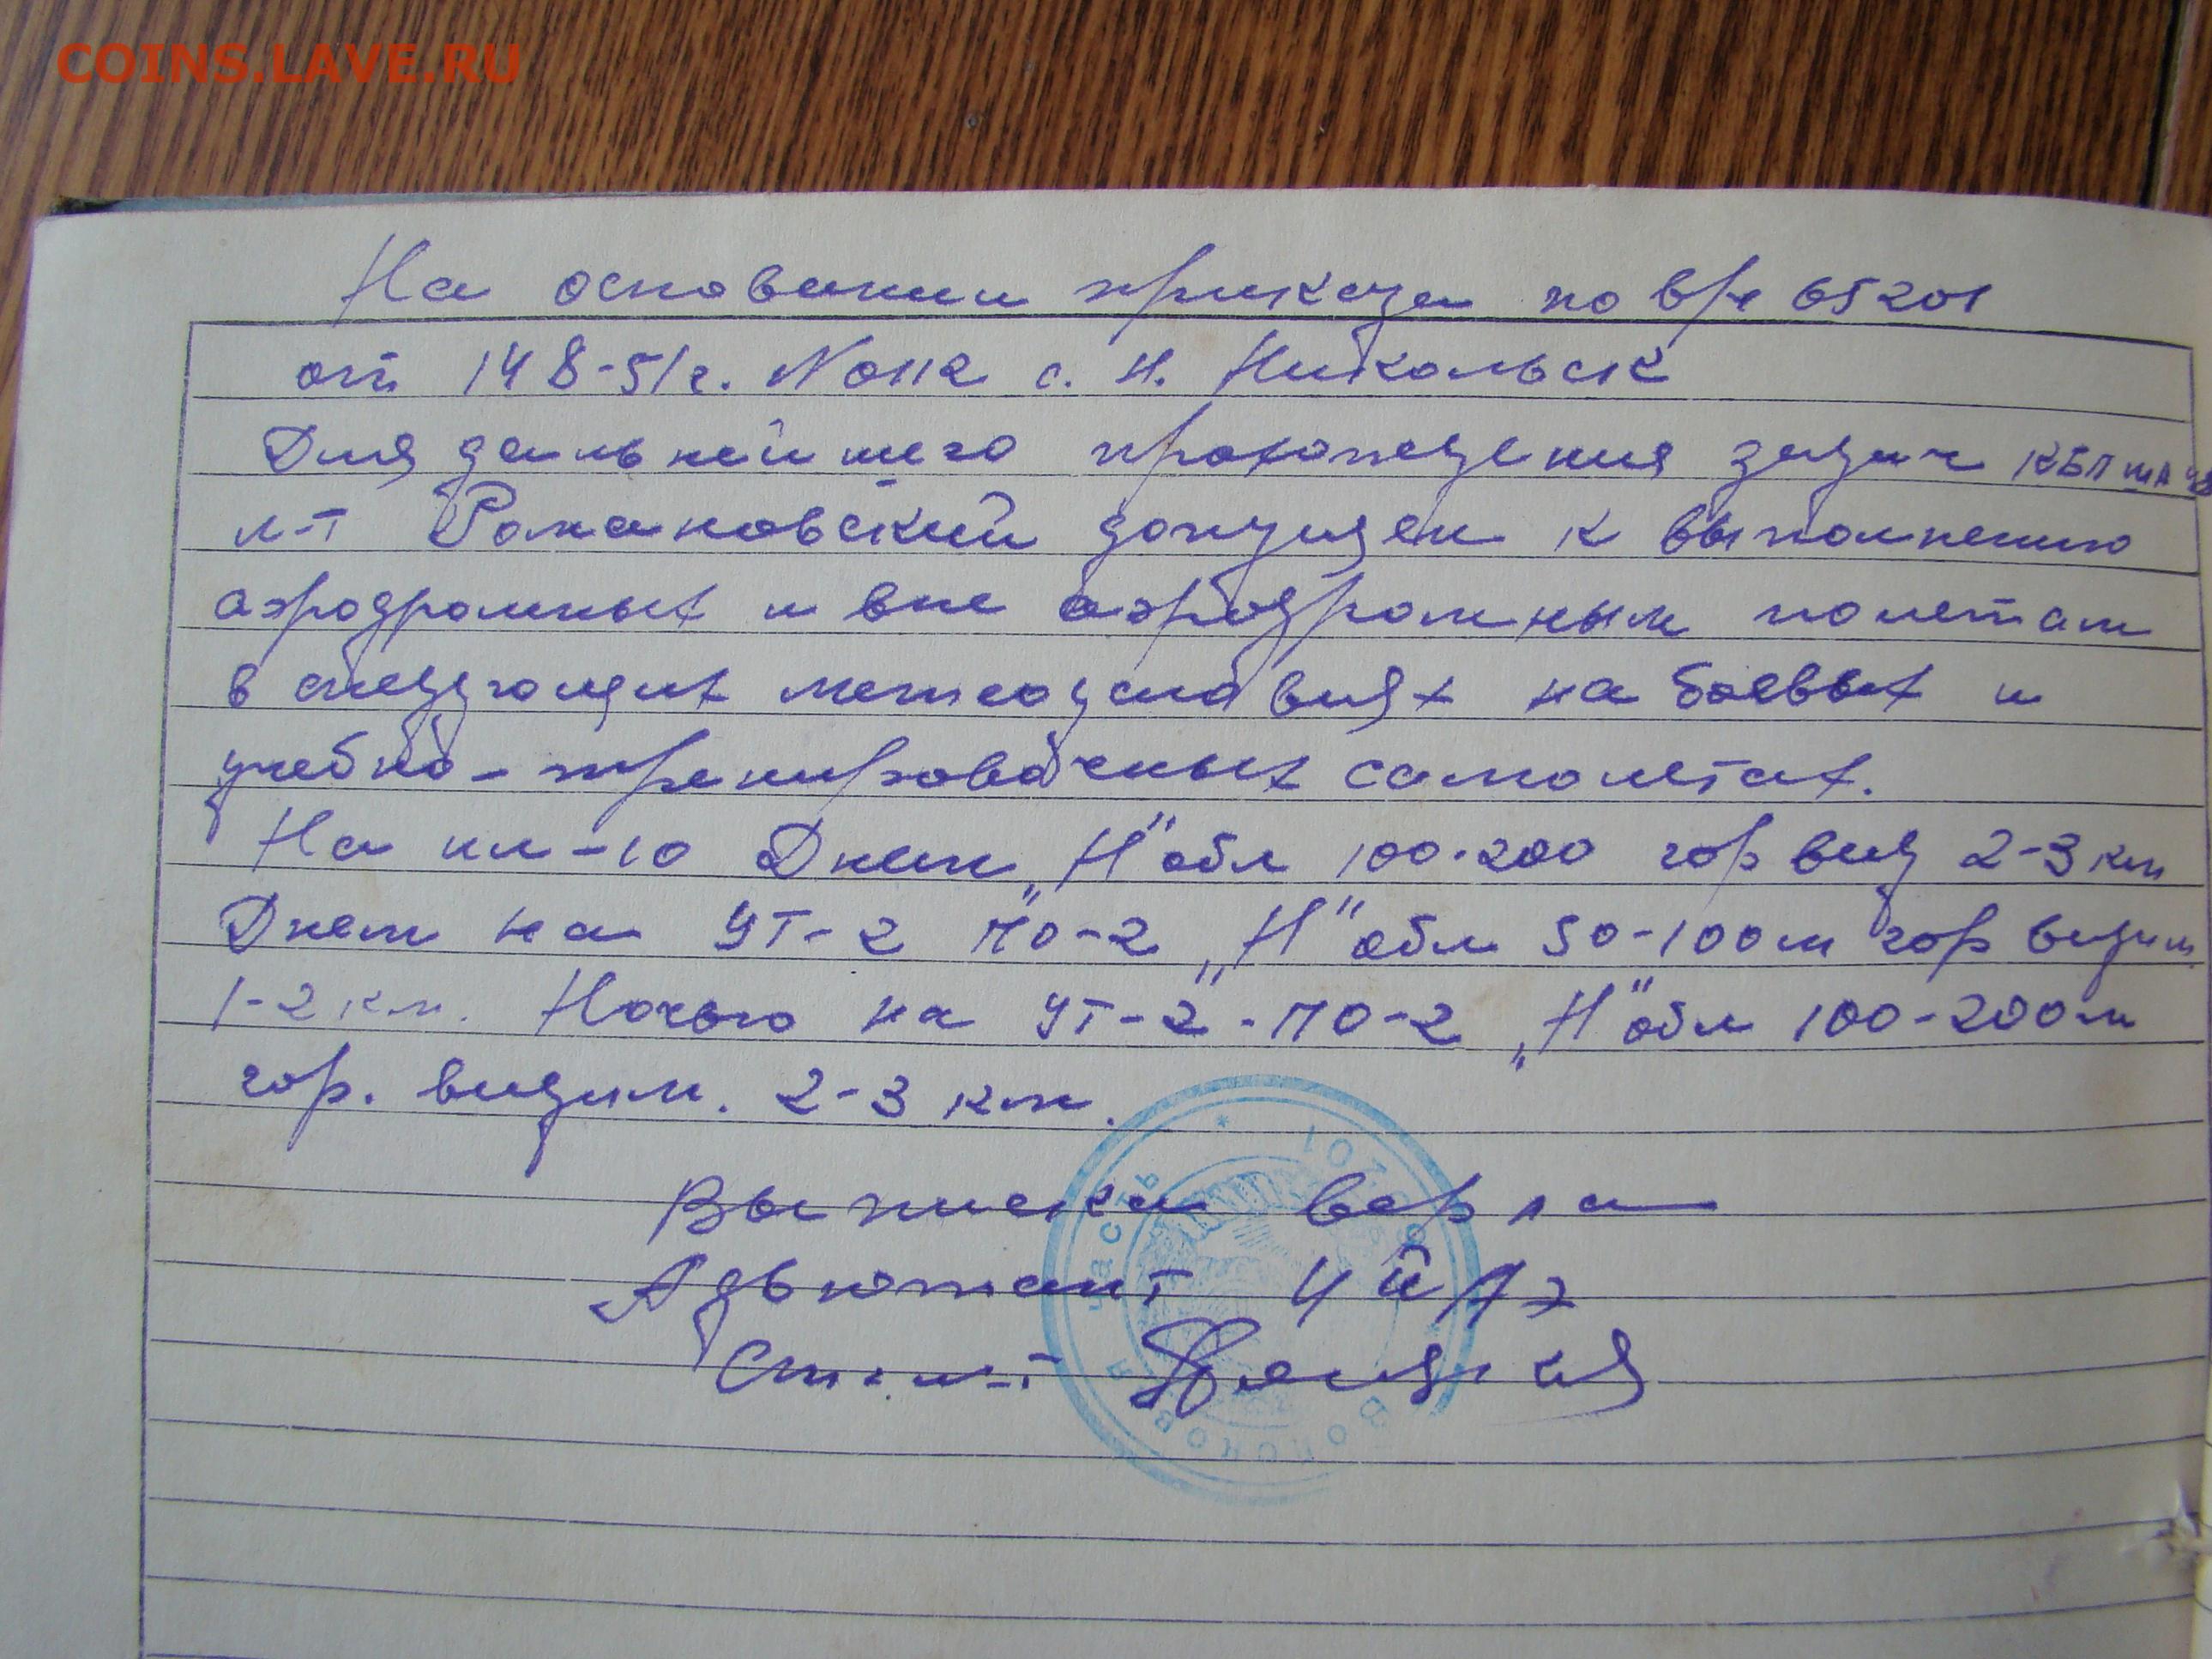 COINS.LAVE.RU
На основании приказа по в/ч 65201
от 14 8-51г. No 112 с. Н. Никольск
Для дальнейшего прохождения задач КБП ША
л-т Романовский допущен к выполнению
аэродромных и вне аэродромным полетам
в следующих метеоусловиях на боевых и
учебно-тренировочных самолетах.
На ил-10 Днем „Н" обл 100-200 гор вид 2-3 км
Днем на УТ-2 ПО-2 „Н" обл 50-100м гор видим
1-2 км. Ночью на УТ-2 - ПО-2 „Н" обл 100-200м
гор. видим. 2-3 км.
Выписка верна
Адьютант 4й АЭ
Ст. л-т
Войсковая часть 65201